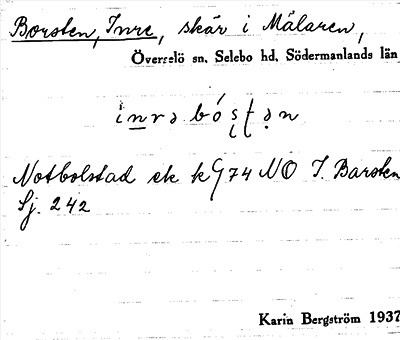 Borsten, Inre, skär i Mälaren,
Överselö sn, Selebo hd, Södermanlands län
Notbolstad ek k G74 NO I. Barsten
Sj. 242
Karin Bergström 1937